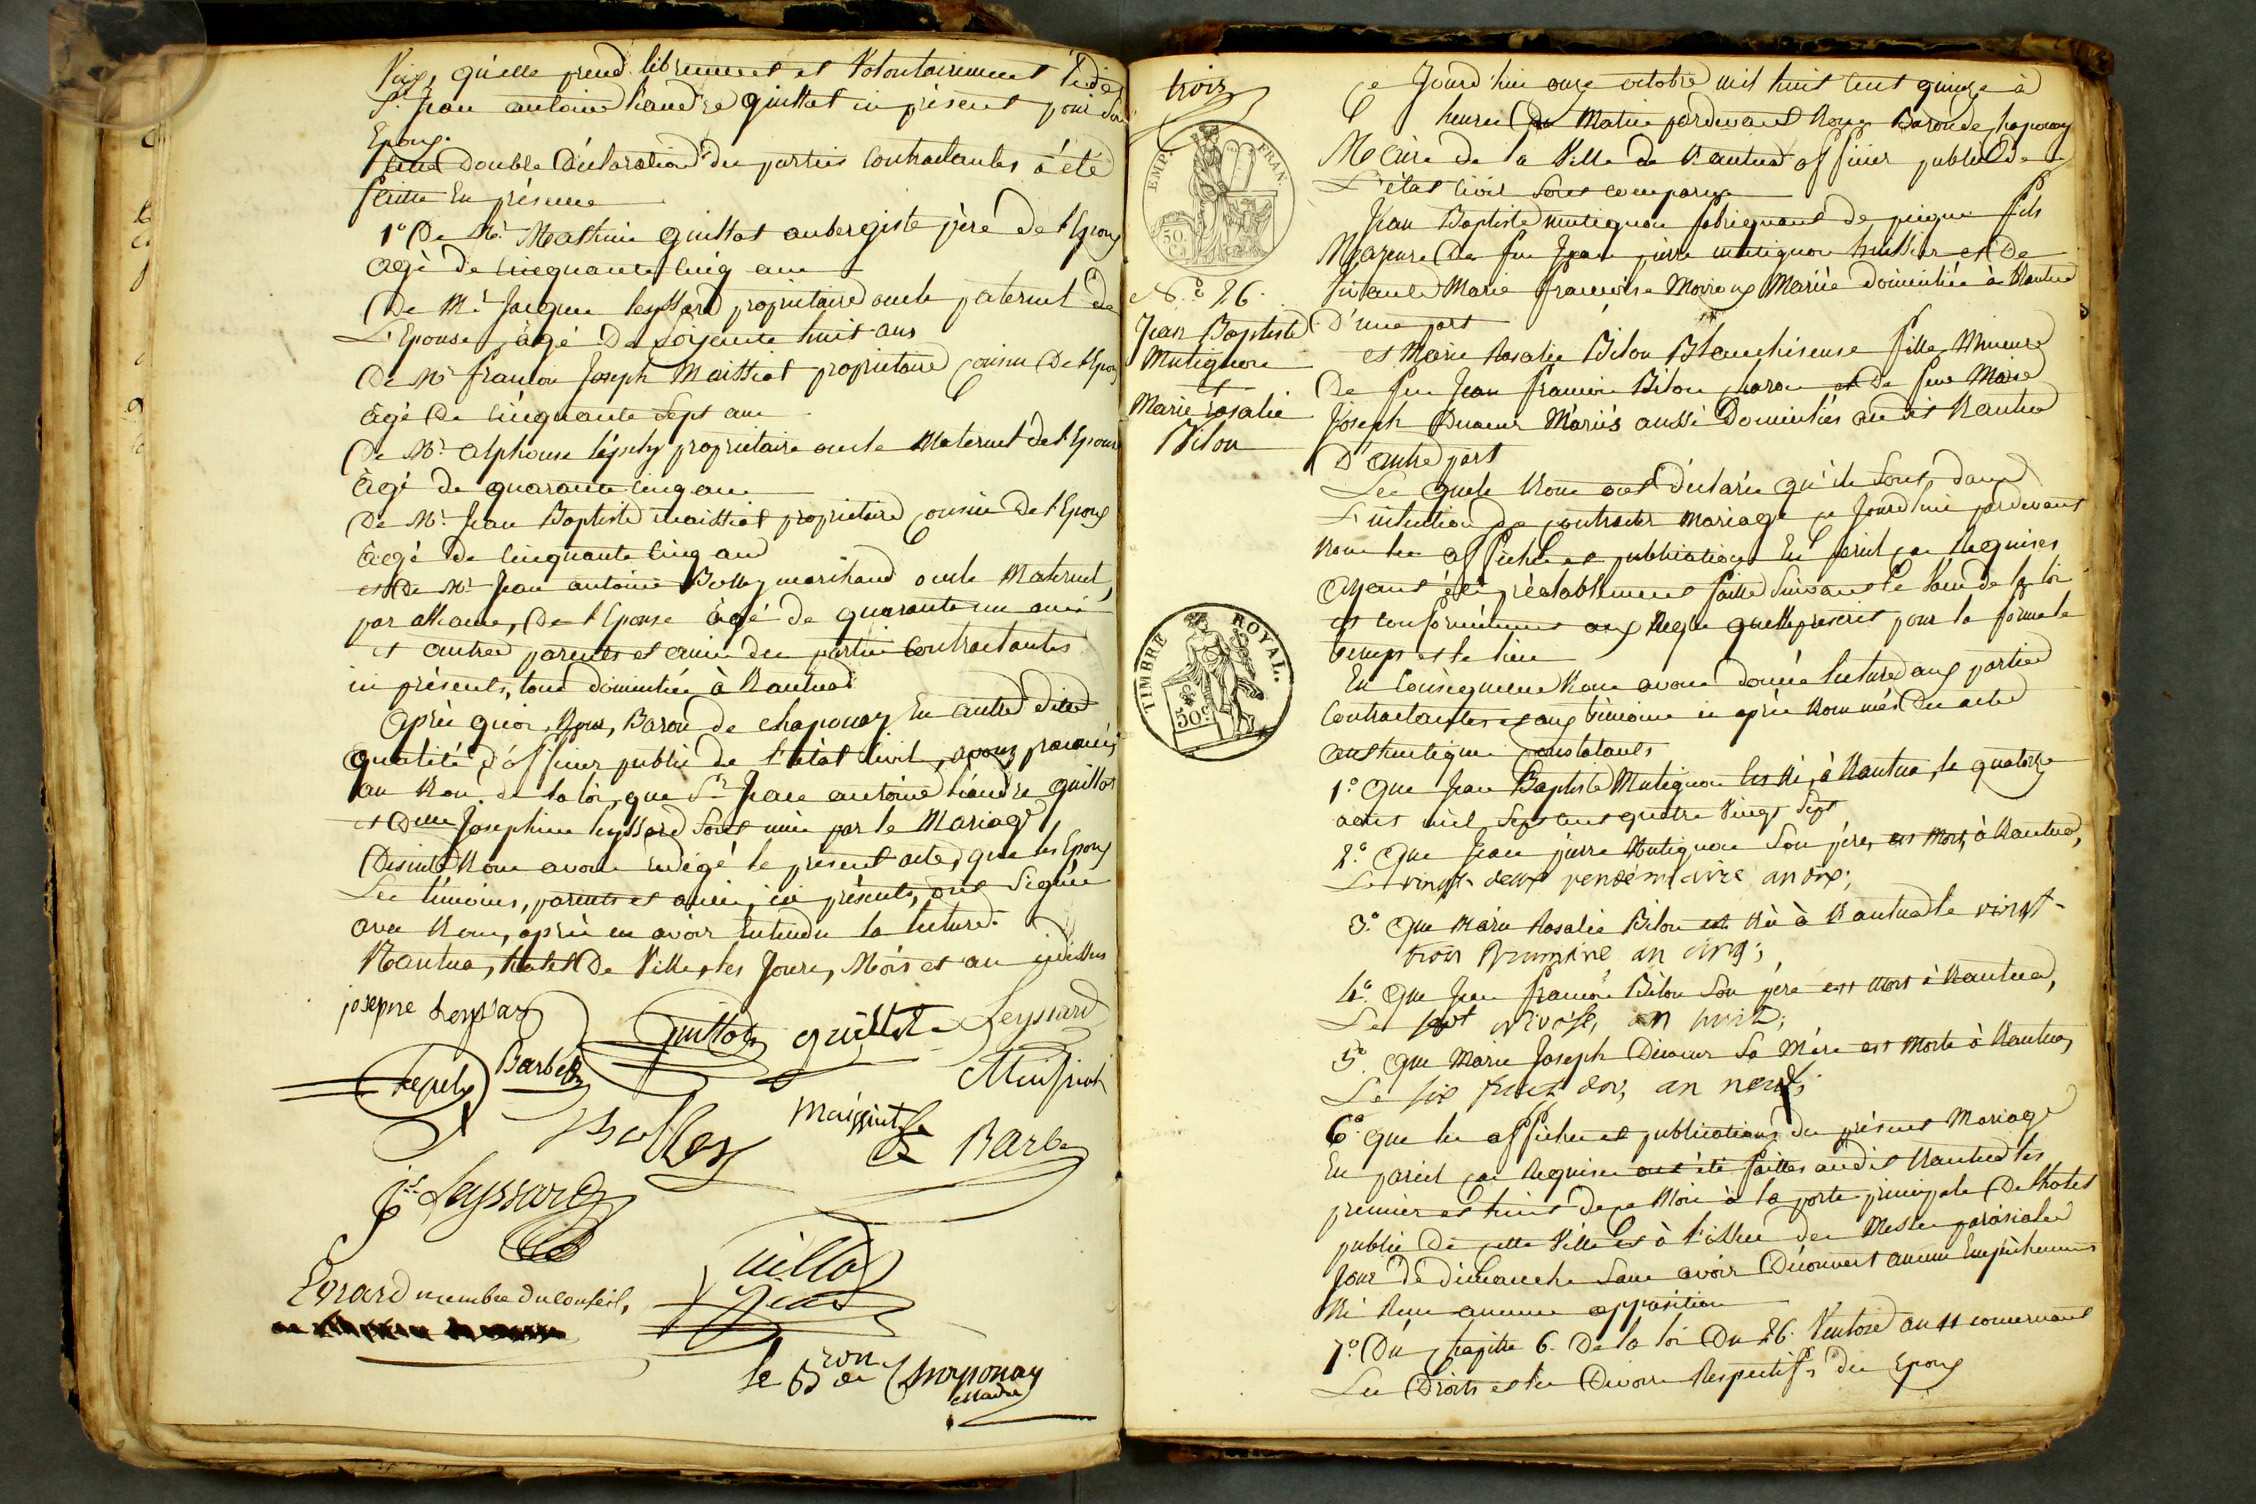 Voix, qu'elle prend librement et Volontairement le dit
Sr. Jean antoine Leandre Guillot ici présent pour Son
Epoux.
Cette Double Déclaration des parties Contractantes à été
faitte En présence
1° De Mr. Mathieu Guillot aubergiste père de l'Epoux
agé de cinquante cinq ans
De Mr. Jacques leyssard propriétaire oncle paternel de
L'Epouse, àgé De Soixente huit ans
De Mr. françois Joseph Maissiat propriétaire Cousin De l'Epoux
àgé De cinquante Sept ans
De Mr. alphonse lépely propriétaire oncle Maternel de l'Epouse
àgé de quarante cinq ans
De Mr. Jean Baptiste maissiat propriétaire Cousin De l'Epoux
àgé de cinquante cinq ans
et De Mr. Jean antoine Bolley marchand oncle Maternel,
par alliance, De l'Epouse àgé de quarante un ans
et autres parents et amis des parties contractantes
ici présents, tous domiciliés à Nantua
Après quoi, Nous, Baron de chaponay En notre dite
qualité d'officier public de l'état civil, avons prononcé
au Nom de la loi, que Sr. Jean antoine léandre guillot
et Dlle Josephine leyssard Sont unis par le Mariage
Desuite Nous avons redigé le present acte, que les Epoux
Les témoins, parents et amis, ici présents, ont Signés
avec Nous, après en avoir Entendu la lecture.
Nantua, hotel De Ville, les Jours, Mois et an cidessus
josepne Leyssar
Guillot Guillot Leyssard
Lepely Barbet Maissiat
Bolley maissiat Barbe
Js. Leyssard
Evrard membre du conseil,
Guillot
le Bron de Chaponay
Maire
trois
EMP. FRAN.
50 C.
N.° 26.
Jean Baptiste
Mutignon
et
Marie Rosalie
Bilon
TIMBRE ROYAL.
50c
Ce Jourd'hui onze octobre mil huit cent quinze à
heures du Matin pardevant Nous Baron de Chaponay
Maire de la Ville de Nantua officier public De
L'état Civil Sont comparus
Jean Baptiste mutignon fabriquant de peigne fils
Majeure De feu Jean pierre mutignon huissier et De
Vivante Marie françoise Moireng Mariés domiciliée à Nantua
D'une part
et Marie Rosalie Bilon Blanchiseuse fille Mineure
De feu Jean françois Bilon charon et De feue Marie
Joseph Ducœur Mariés aussi Domiciliés au dit Nantua
D'autre part
Les quels Nous ont déclarés qu'ils Sont dans
L'intention de contracter Mariage ce Jourd'hui pardevant
nous les affiches et publications En pareil cas Requises
ayant été préalablement faittes Suivant le Vœu de la loi
et conformément aux Regles quelle prescrit pour la forme le
temps et le lieu
En Conséquence Nous avons donnée lecture aux parties
Contractantes et aux témoins ci après Nommés des actes
authentiques Constatants
1.° Que Jean Baptiste Mutignon est Né, à Nantua, le quatorze
aout mil Sept cent quatre Vingt Sept
2.° Que Jean pierre Mutignon Son père, est Mort, à Nantua,
Le vingt deux vendemiaire an dix;
3.° Que Marie Rosalie Bilon est Né à Nantua le vingt-
trois Brumaire an cinq;
4.° Que Jean françois Bilon Son père est Mort à Nantua,
Le sept nivôse, an huit;
5.° Que Marie Joseph Ducœur Sa Mère est Morte à Nantua,
Le six fructidor, an neuf;
6.° Que les affiches et publications du présent Mariage
En pareil cas Requises ont été faittes audit Nantua les
premier et huit De ce Mois à la porte principale De l'hotel
public De cette Ville et à l'issue des Messes parossiales
Jour de dimanche Sans avoir Découvert aucun Empèchement
Ni Reçu aucune opposition
7.° Du chapitre 6. De la loi Du 26. Ventose an 11 concernant
Les Droits et les Devoirs Respectifs des Epoux